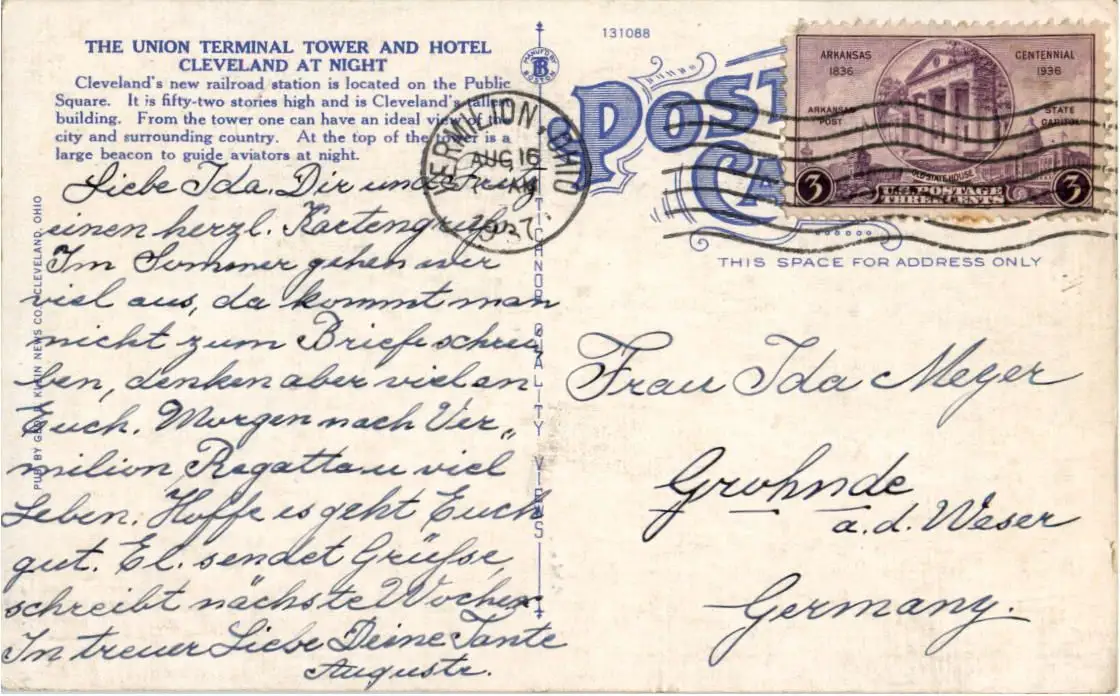 THE UNION TERMINAL TOWER AND HOTEL
CLEVELAND AT NIGHT
Cleveland's new railroad station is located on the Public
Square. It is fifty-two stories high and is Cleveland's tallest
building. From the tower one can have an ideal view of the
city and surrounding country. At the top of the tower is a
large beacon to guide aviators at night.
Liebe Ida. Dir und Fritz
einen herzl. Kartengruß.
Im Sommer gehen wir
viel aus, da kommt man
nicht zum Briefeschrei
ben, denken aber viel an
Euch. Morgen nach Ver„
milion Regatta u viel
Leben. Hoffe es geht Euch
gut. El. sendet Grüße,
schreibt nächste Woche.
In treuer Liebe Deine Tante
Auguste.
PUB. BY GEORGE KLEIN NEWS CO., CLEVELAND, OHIO
MANUF'D BY
BOSTON
TICHNOR QUALITY VIEWS
131088
POST
CA
VERMILION, OHIO
AUG 16
1937
ARKANSAS
1836
CENTENNIAL
1936
ARKANSAS
POST
STATE
CAPITOL
OLD STATE HOUSE
3
U.S. POSTAGE
THREE CENTS
3
THIS SPACE FOR ADDRESS ONLY
Frau Ida Meyer
Grohnde
a.d. Weser
Germany.